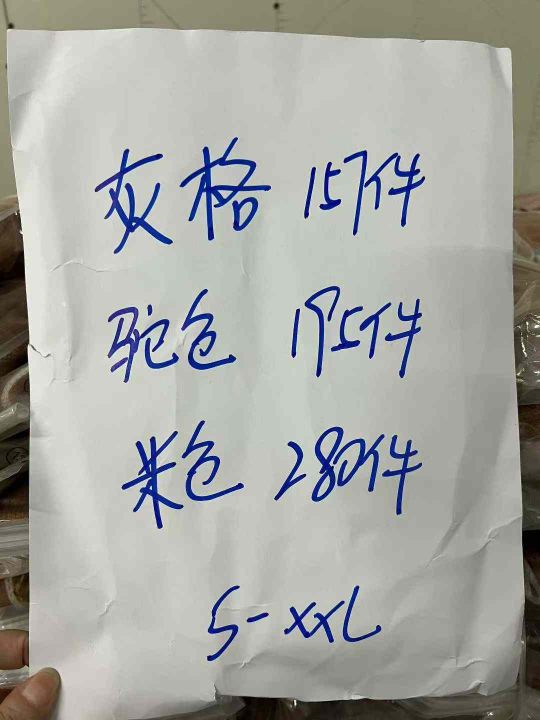 灰格 157件
驼色 195件
米色 280件
S-XXL